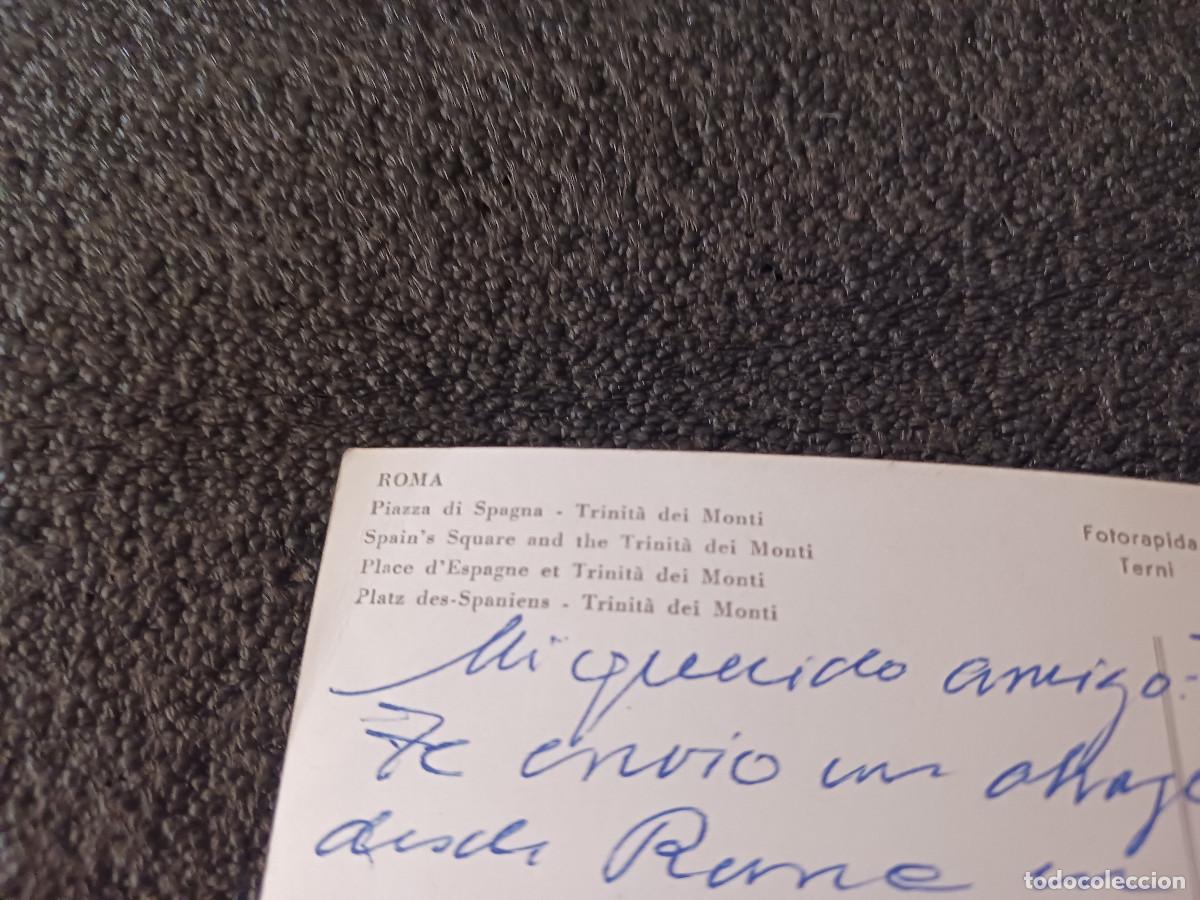 ROMA
Piazza di Spagna - Trinità dei Monti
Spain's Square and the Trinità dei Monti
Place d'Espagne et Trinità dei Monti
Platz des-Spaniens - Trinità dei Monti
Fotorapida
Terni
Mi querido amigo:
Te envio un abrazo
desde Rome
todocoleccion